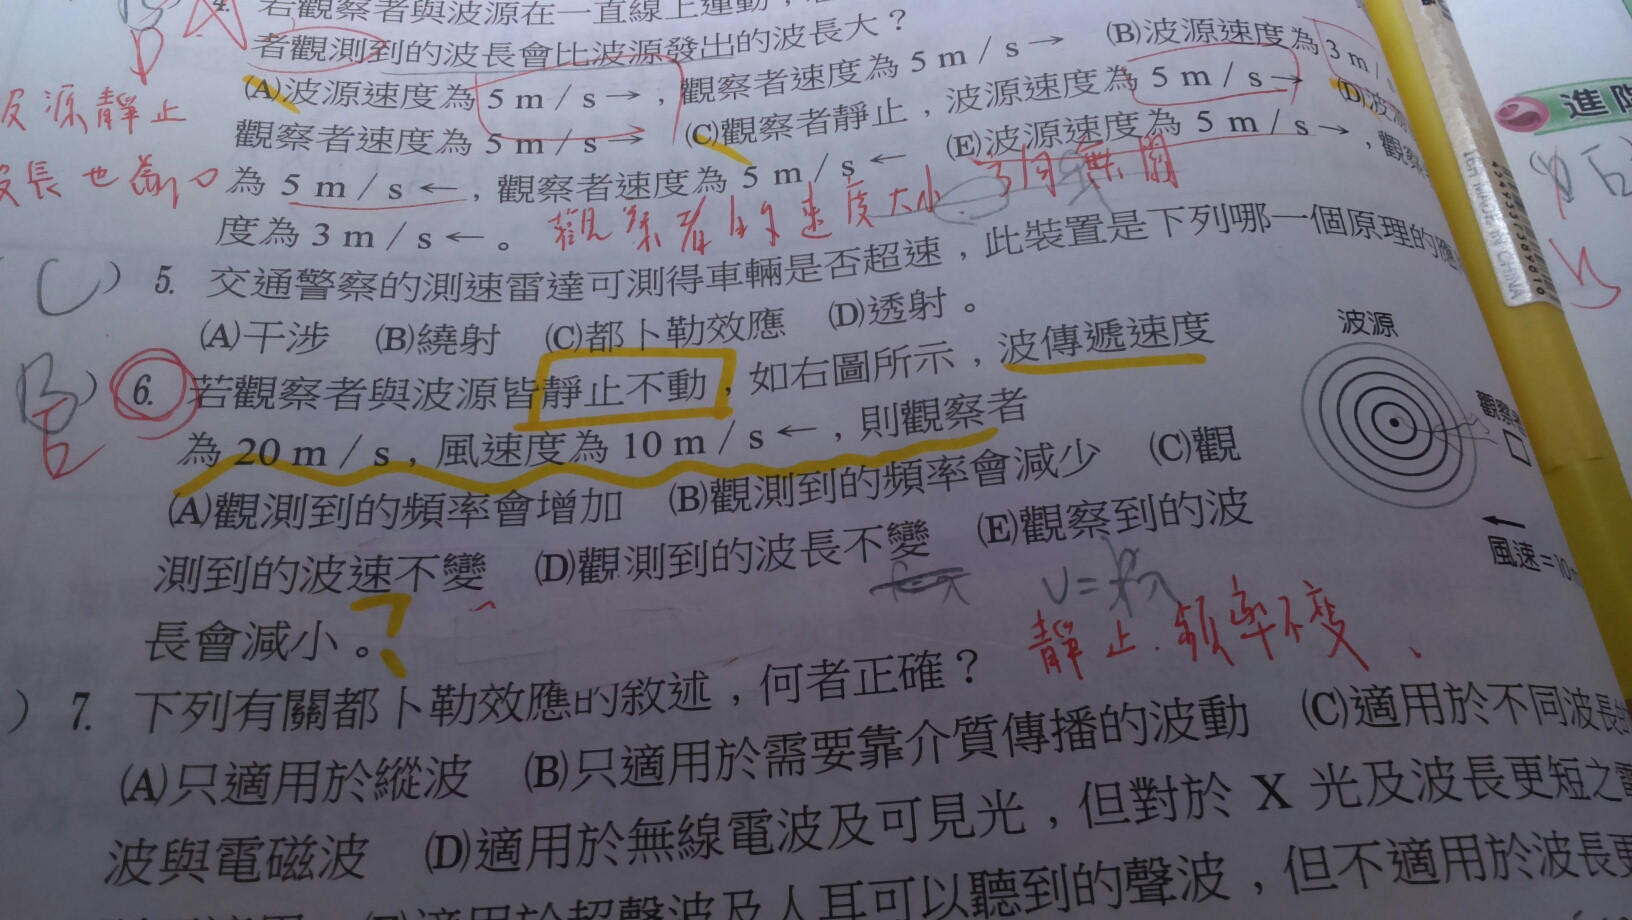 4. 若觀察者與波源在一直線上運動，
者觀測到的波長會比波源發出的波長大？
(A)波源速度為 5 m / s→，觀察者速度為 5 m / s→ (B)波源速度為 3 m /
觀察者速度為 5 m / s→ (C)觀察者靜止，波源速度為 5 m / s→ (D)波源
為 5 m / s←，觀察者速度為 5 m / s← (E)波源速度為 5 m / s→，觀
度為 3 m / s←。
D
波源靜止
波長也
觀察者的速度大小.方向無關
(C) 5. 交通警察的測速雷達可測得車輛是否超速，此裝置是下列哪一個原理的應
(A)干涉 (B)繞射 (C)都卜勒效應 (D)透射。
(B) 6. 若觀察者與波源皆靜止不動，如右圖所示，波傳遞速度
E
為 20 m / s，風速度為 10 m / s←，則觀察者
(A)觀測到的頻率會增加 (B)觀測到的頻率會減少 (C)觀
測到的波速不變 (D)觀測到的波長不變 (E)觀察到的波
長會減小。?
V=fλ
靜止.頻率不變、
波源
觀察者
風速=10
) 7. 下列有關都卜勒效應的敘述，何者正確？
(A)只適用於縱波 (B)只適用於需要靠介質傳播的波動 (C)適用於不同波長
波與電磁波 (D)適用於無線電波及可見光，但對於 X 光及波長更短之電
適用於超聲波及人耳可以聽到的聲波，但不適用於波長更
進階
MADE IN CHINA